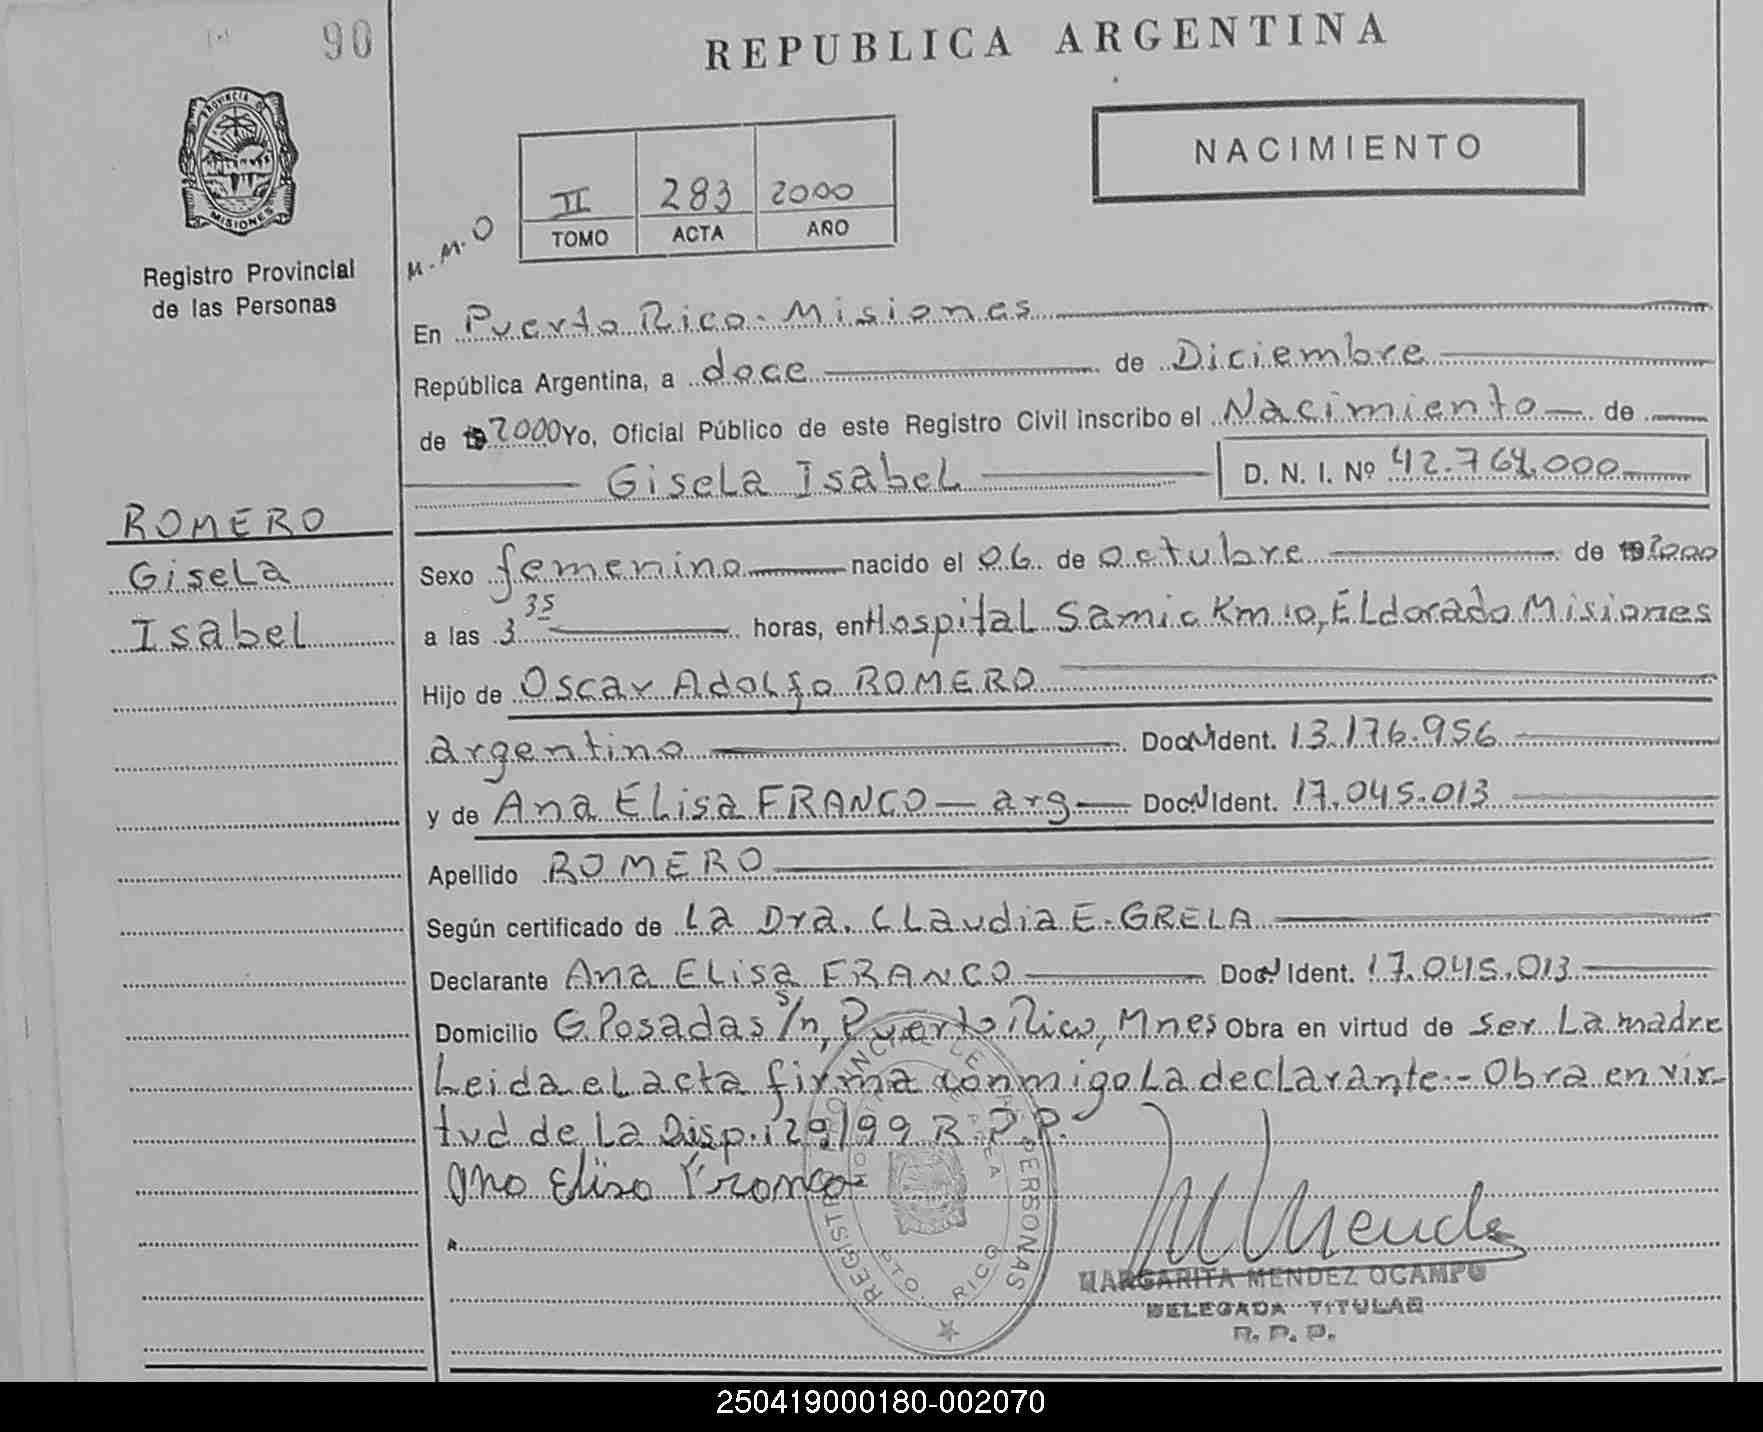 90
REPUBLICA ARGENTINA
PROVINCIA DE
MISIONES
NACIMIENTO
II 283 2000
TOMO ACTA AÑO
M.M.O
Registro Provincial
de las Personas
En Puerto Rico - Misiones
República Argentina, a doce de Diciembre
de 2000 Yo, Oficial Público de este Registro Civil inscribo el Nacimiento de
Gisela Isabel D. N. I. Nº 42.764.000
ROMERO
Gisela
Isabel
Sexo femenino nacido el 06 de octubre de 2000
a las 3 35 horas, en Hospital Samic Km 10, Eldorado Misiones
Hijo de Oscar Adolfo ROMERO
argentino Doc. N Ident. 13.176.956
y de Ana Elisa FRANCO - arg - Doc. N Ident. 17.045.013
Apellido ROMERO
Según certificado de La Dra. Claudia E. GRELA
Declarante Ana Elisa FRANCO Doc. N Ident. 17.045.013
Domicilio G. Posadas s/n, Puerto Rico, Mnes Obra en virtud de Ser La madre
Leida el acta firma conmigo La declarante.- Obra en vir-
tud de La Disp. 129/99 R.P.P.
Ana Elisa Franco
REGISTRO PROVINCIAL DE LAS PERSONAS
PTO RICO
M Mendez
MARGARITA MENDEZ OCAMPO
DELEGADA TITULAR
R. P. P.
250419000180-002070